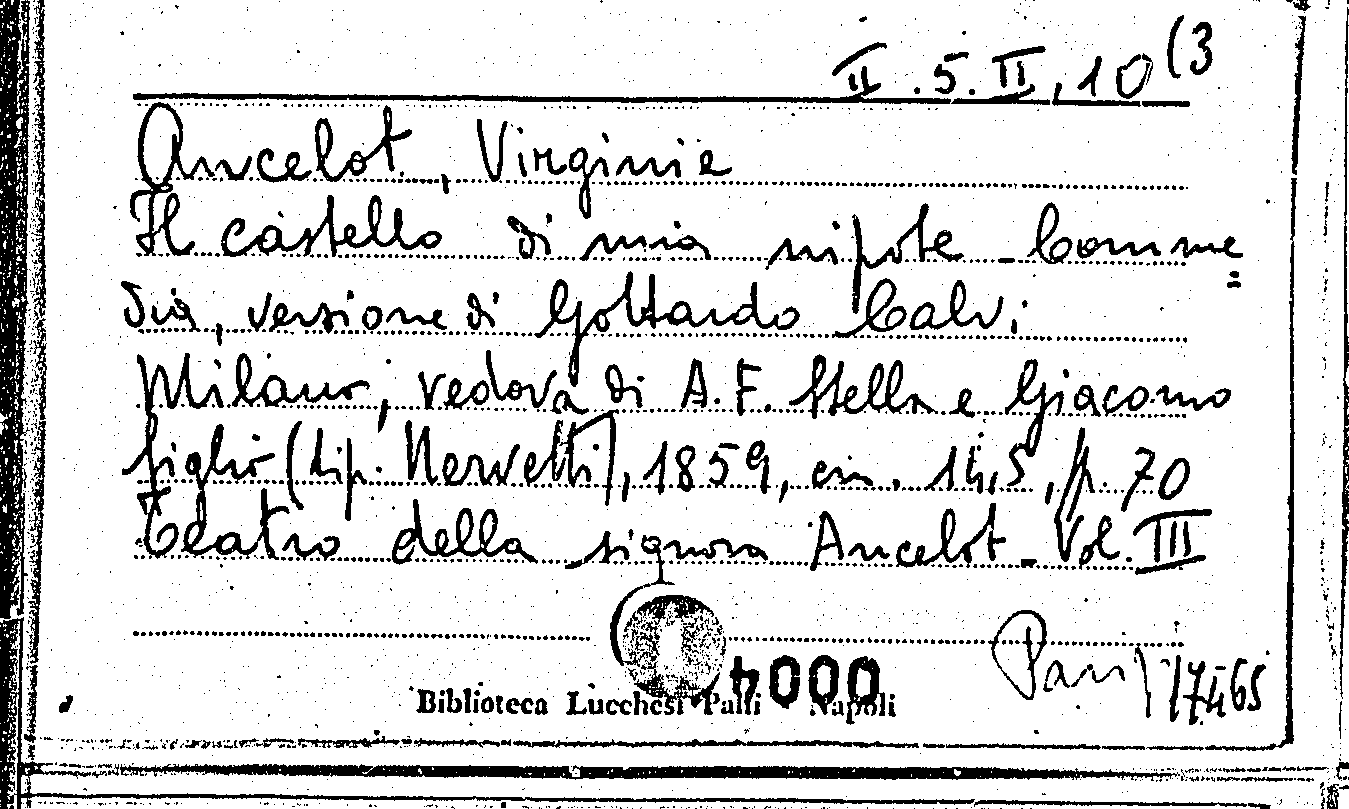 II.5.II,10(3
Ancelot, Virginie
Il castello di mia nipote - Comme=
dia, versione di Gottardo Calvi
Milano, vedova di A.F. Stella e Giacomo
figlio (tip. Nervetti), 1859, cm. 14,5, p. 70
Teatro della signora Ancelot - Vol. III
4000
17465
Biblioteca Lucchesi Palli Napoli